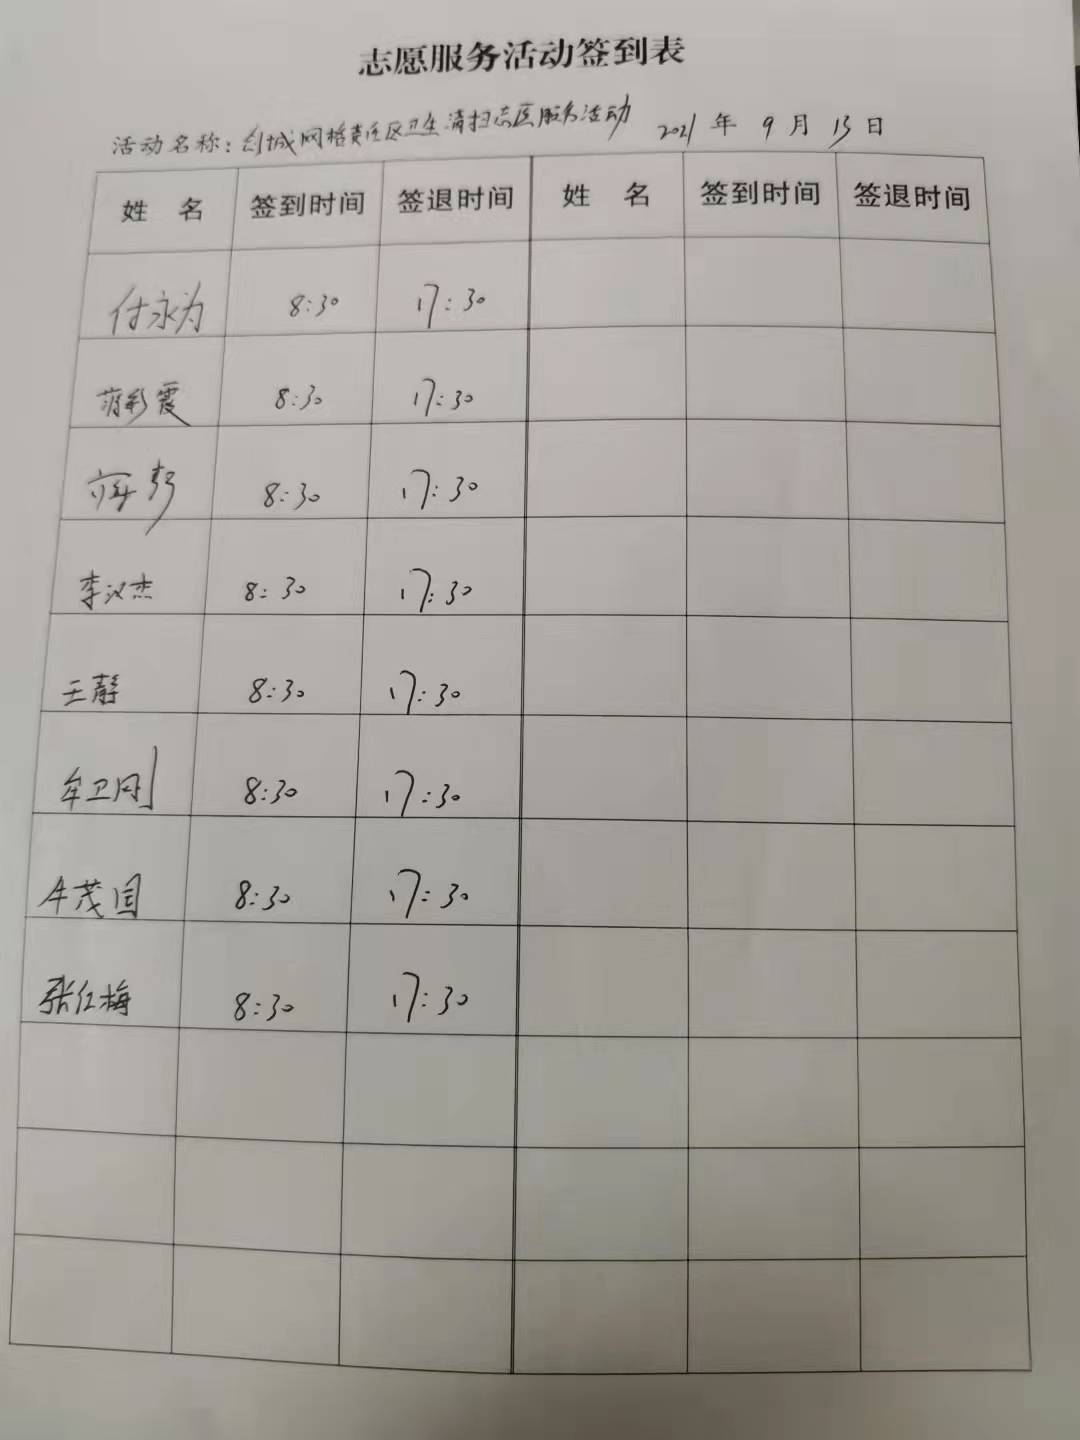 志愿服务活动签到表
活动名称：创城网格责任区卫生清扫志愿服务活动 2021年9月13日
姓 名 签到时间 签退时间 姓 名 签到时间 签退时间
付永为 8:30 17:30
蒋彩霞 8:30 17:30
8:30 17:30
李汉杰 8:30 17:30
王静 8:30 17:30
牟卫刚 8:30 17:30
牛茂国 8:30 17:30
张红梅 8:30 17:30